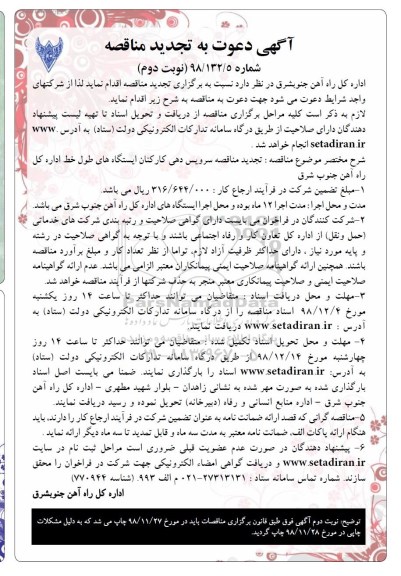 آگهی دعوت به تجدید مناقصه
شماره ۹۸/۱۳۲/۵ (نوبت دوم)
اداره کل راه آهن جنوبشرق در نظر دارد نسبت به برگزاری تجدید مناقصه اقدام نماید لذا از شرکتهای
واجد شرایط دعوت می شود جهت دعوت به مناقصه به شرح زیر اقدام نماید.
لازم به ذکر است کلیه مراحل برگزاری مناقصه از دریافت و تحویل اسناد تا تهیه لیست پیشنهاد
دهندگان دارای صلاحیت از طریق درگاه سامانه تدارکات الکترونیکی دولت (ستاد) به آدرس www.
setadiran.ir انجام خواهد شد .
شرح مختصر موضوع مناقصه : تجدید مناقصه سرویس دهی کارکنان ایستگاه های طول خط اداره کل
راه آهن جنوب شرق
۱-مبلغ تضمین شرکت در فرآیند ارجاع کار : ۳۱۶/۶۴۴/۰۰۰ ریال می باشد.
مدت و محل اجرا: مدت اجرا ۱۲ ماه بوده و محل اجرا ایستگاه های اداره کل راه آهن جنوب شرق می باشد.
۲-شرکت کنندگان در فراخوان می بایست دارای گواهی صلاحیت و رتبه بندی شرکت های خدماتی
(حمل ونقل) از اداره کل تعاون کار و رفاه اجتماعی باشند و با توجه به گواهی صلاحیت در رشته
و پایه مورد نیاز ، دارای حداکثر ظرفیت آزاد لازم، توأما از نظر تعداد کار و مبلغ برآورد مناقصه
باشند. همچنین ارائه گواهینامه صلاحیت ایمنی پیمانکاران معتبر الزامی می باشد. عدم ارائه گواهینامه
صلاحیت ایمنی و صلاحیت پیمانکاری معتبر منجر به حذف شرکتها از فرآیند مناقصه خواهد شد.
۳-مهلت و محل دریافت اسناد : متقاضیان می توانند حداکثر تا ساعت ۱۴ روز یکشنبه
مورخ ۹۸/۱۲/۴ اسناد مناقصه را از درگاه سامانه تدارکات الکترونیکی دولت (ستاد) به
آدرس : www.setadiran.ir دریافت نمایند.
۴- مهلت و محل تحویل اسناد تکمیل شده : متقاضیان می توانند حداکثر تا ساعت ۱۴ روز
چهارشنبه مورخ ۹۸/۱۲/۱۴ از طریق درگاه سامانه تدارکات الکترونیکی دولت (ستاد)
به آدرس: www.setadiran.ir اسناد را بارگذاری نمایند. ضمنا می بایست اصل اسناد
بارگذاری شده به صورت مهر شده به نشانی زاهدان - بلوار شهید مطهری - اداره کل راه آهن
جنوب شرق - اداره منابع انسانی و رفاه (دبیرخانه) تحویل نموده و رسید دریافت نمایند.
۵-مناقصه گرانی که قصد ارائه ضمانت نامه به عنوان تضمین شرکت در فرآیند ارجاع کار را دارند، باید
هنگام ارائه پاکات الف، ضمانت نامه معتبر به مدت سه ماه و قابل تمدید تا سه ماه دیگر ارائه نماید .
۶- پیشنهاد دهندگان در صورت عدم عضویت قبلی ضروری است مراحل ثبت نام در سایت
www.setadiran.ir و دریافت گواهی امضاء الکترونیکی جهت شرکت در فراخوان را محقق
سازند. شماره تماس سامانه ستاد : ۲۷۳۱۳۱۳۱-۰۲۱ م الف ۹۹۳. (شناسه ۷۷۰۹۴۴)
اداره کل راه آهن جنوبشرق
توضیح: نوبت دوم آگهی فوق طبق قانون برگزاری مناقصات باید در مورخ ۹۸/۱۱/۲۷ چاپ می شد که به دلیل مشکلات
چاپی در مورخ ۹۸/۱۱/۲۸ چاپ گردید.